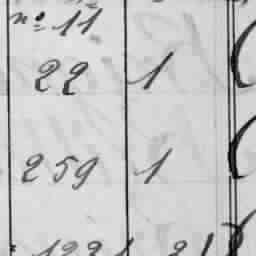 nº 11
22 1
259 1